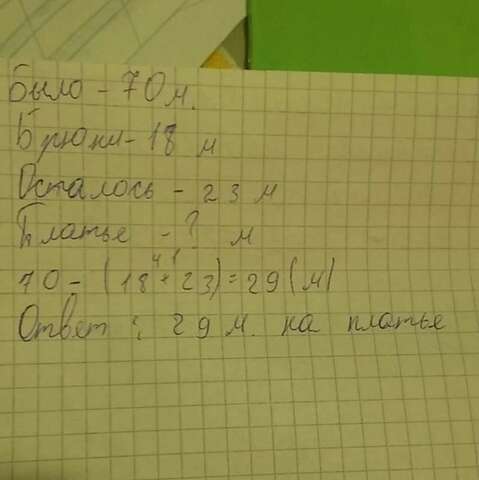 Было - 70 м.
Брюки - 18 м
Осталось - 23 м
Платье - ? м
41
70 - (18 + 23) = 29 (м)
Ответ: 29 м. на платье